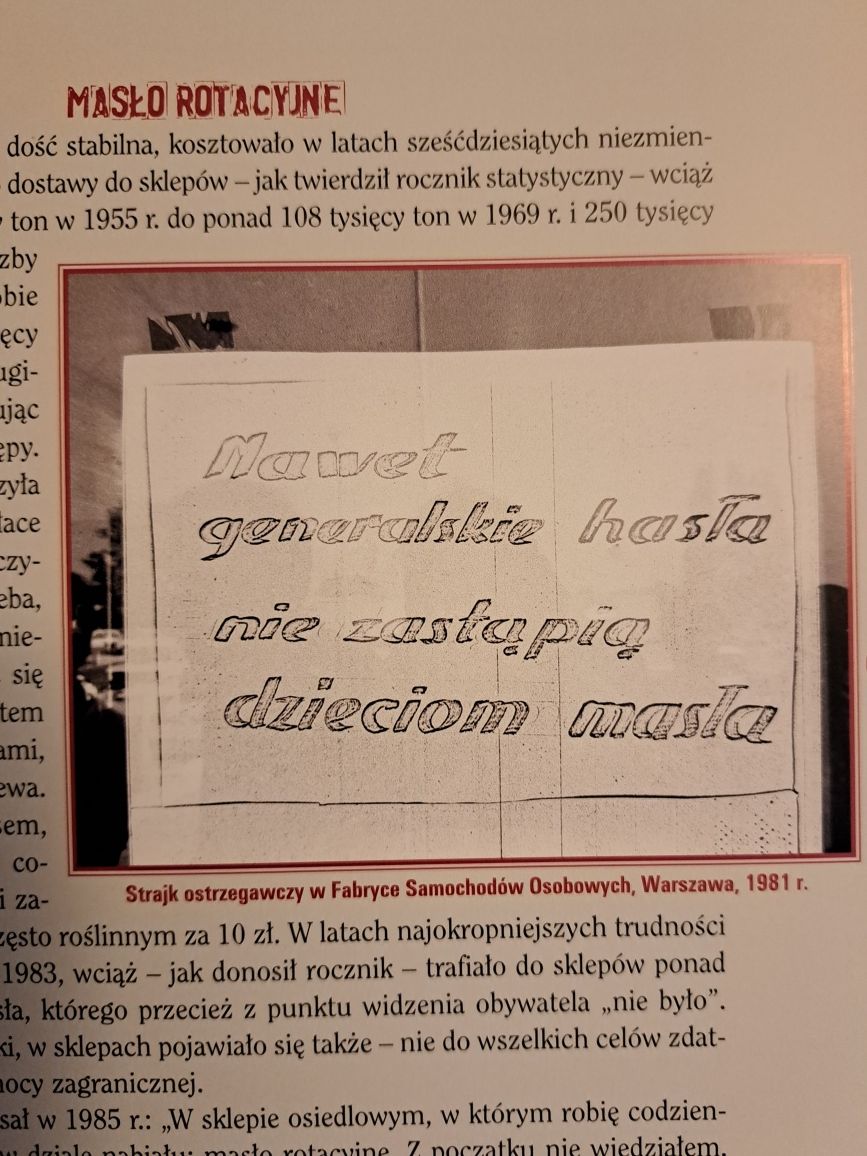 MASŁO ROTACYJNE
dość stabilna, kosztowało w latach sześćdziesiątych niezmien-
dostawy do sklepów – jak twierdził rocznik statystyczny – wciąż
ton w 1955 r. do ponad 108 tysięcy ton w 1969 r. i 250 tysięcy
zby
obie
ęcy
ugi-
ując
ępy.
zyła
łace
czy-
eba,
nie-
się
tem
ami,
ewa.
sem,
co-
i za-
Nawet
generalskie hasła
nie zastąpią
dzieciom masła
Strajk ostrzegawczy w Fabryce Samochodów Osobowych, Warszawa, 1981 r.
zęsto roślinnym za 10 zł. W latach najokropniejszych trudności
1983, wciąż – jak donosił rocznik – trafiało do sklepów ponad
sła, którego przecież z punktu widzenia obywatela „nie było”.
ki, w sklepach pojawiało się także – nie do wszelkich celów zdat-
mocy zagranicznej.
sał w 1985 r.: „W sklepie osiedlowym, w którym robię codzien-
w dziale nabiału: masło rotacyjne. Z początku nie wiedziałem,